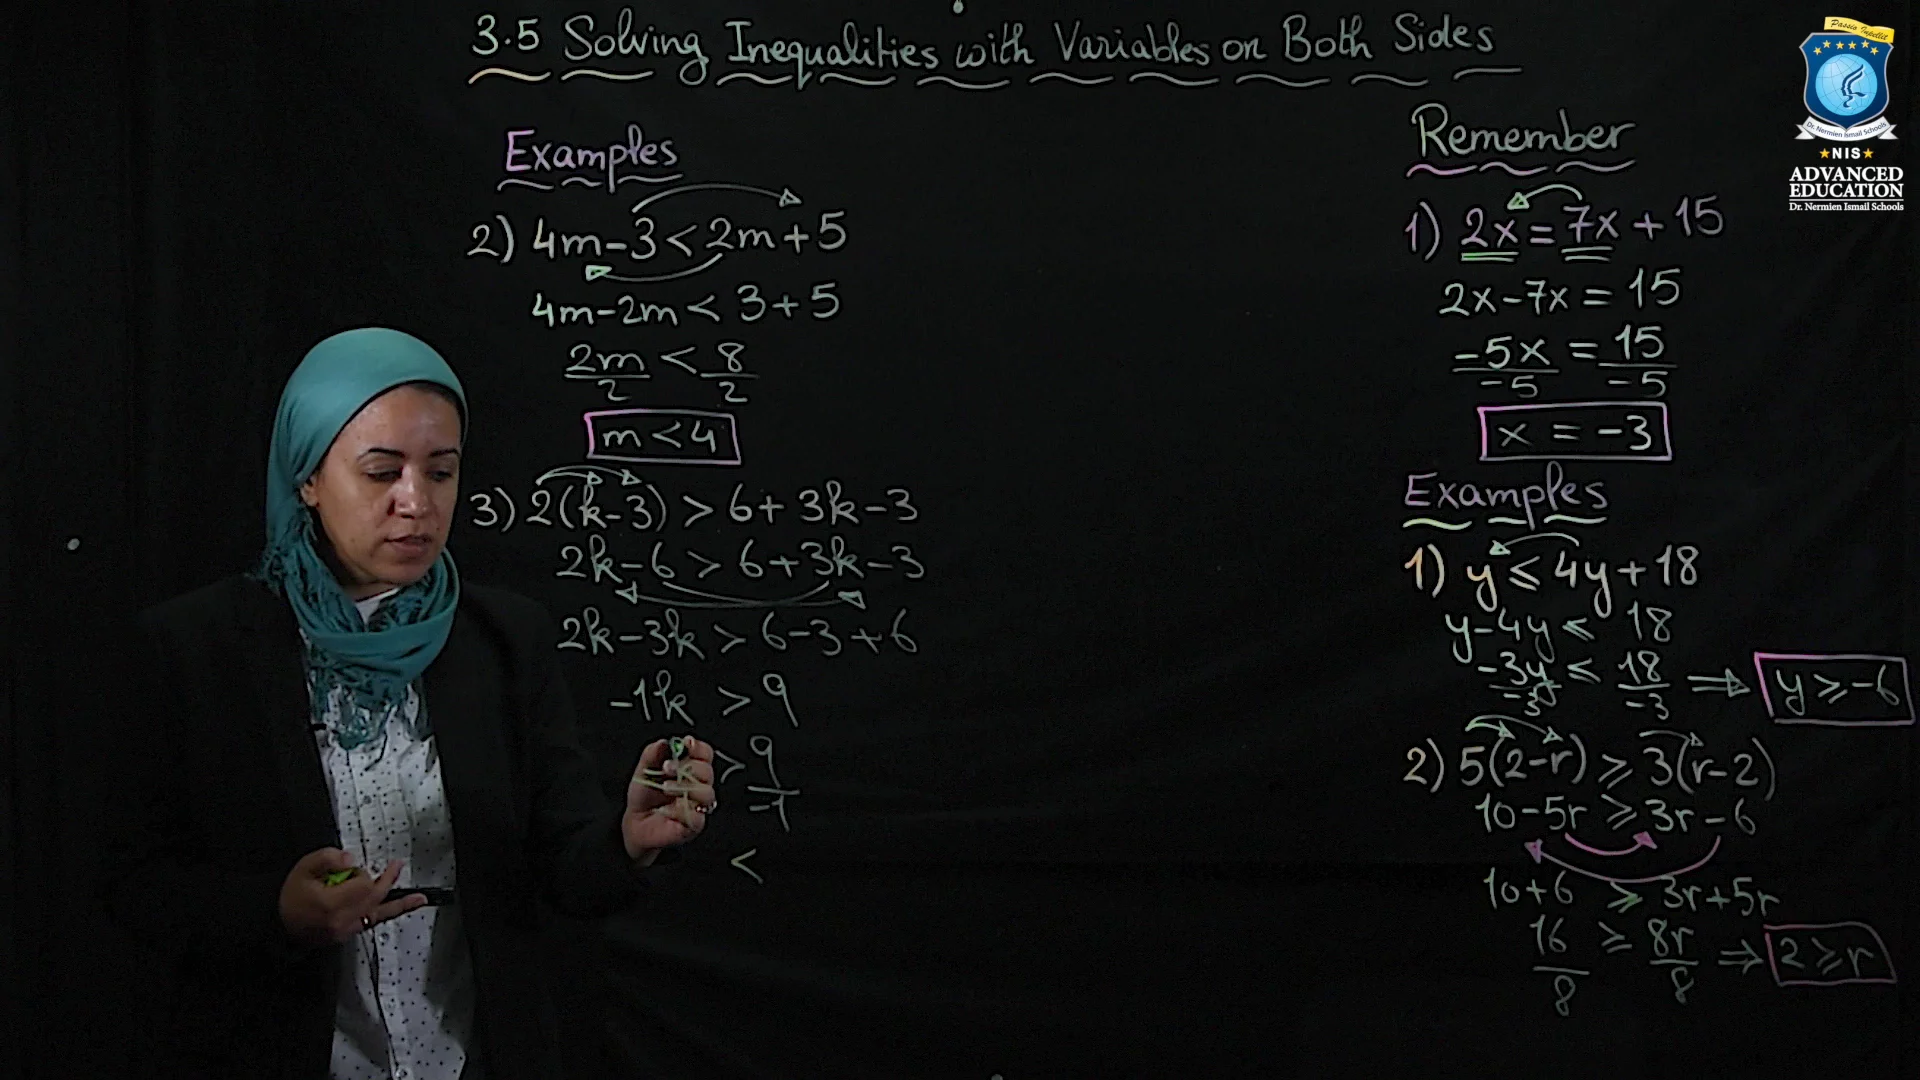 3.5 Solving Inequalities with Variables on Both Sides
Examples
2) 4m-3 < 2m+5
4m-2m < 3+5
2m/2 < 8/2
m < 4
3) 2(k-3) > 6+3k-3
2k-6 > 6+3k-3
2k-3k > 6-3+6
-1k > 9
> 9/-1
<
Remember
1) 2x = 7x + 15
2x-7x = 15
-5x/-5 = 15/-5
x = -3
Examples
1) y ≤ 4y+18
y-4y ≤ 18
-3y/-3 ≤ 18/-3 ⇒ y ≥ -6
2) 5(2-r) ≥ 3(r-2)
10-5r ≥ 3r-6
10+6 ≥ 3r+5r
16/8 ≥ 8r/8 ⇒ 2 ≥ r
Passio Impellit
Dr. Nermien Ismail Schools
★NIS★
ADVANCED
EDUCATION
Dr. Nermien Ismail Schools